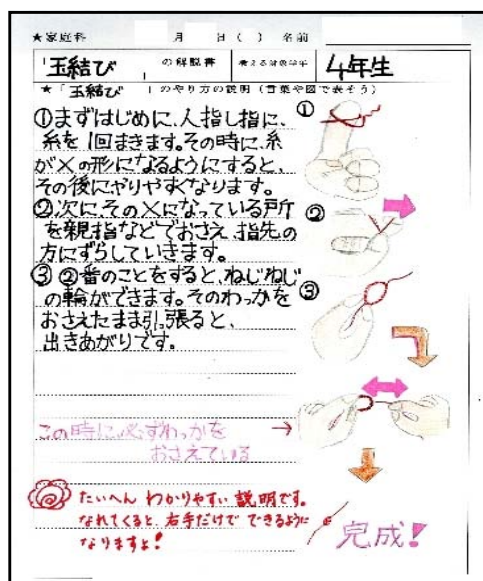 ★家庭科 月 日( ) 名前
「玉結び」の解説書 教える対象学年 4年生
★「玉結び」のやり方の説明(言葉や図で表そう)
①まずはじめに、人指し指に、
糸を1回まきます。その時に、糸
が×の形になるようにすると、
その後にやりやすくなります。
②次に、その×になっている所
を親指などでおさえ、指先の
方にずらしていきます。
③②番のことをすると、ねじねじ
の輪ができます。そのわっかを
おさえたまま引っ張ると、
出きあがりです。
①
②
③
この時に必ずわっかを
おさえている
たいへん わかりやすい 説明です。
なれてくると、右手だけで できるように
なりますよ!
完成!